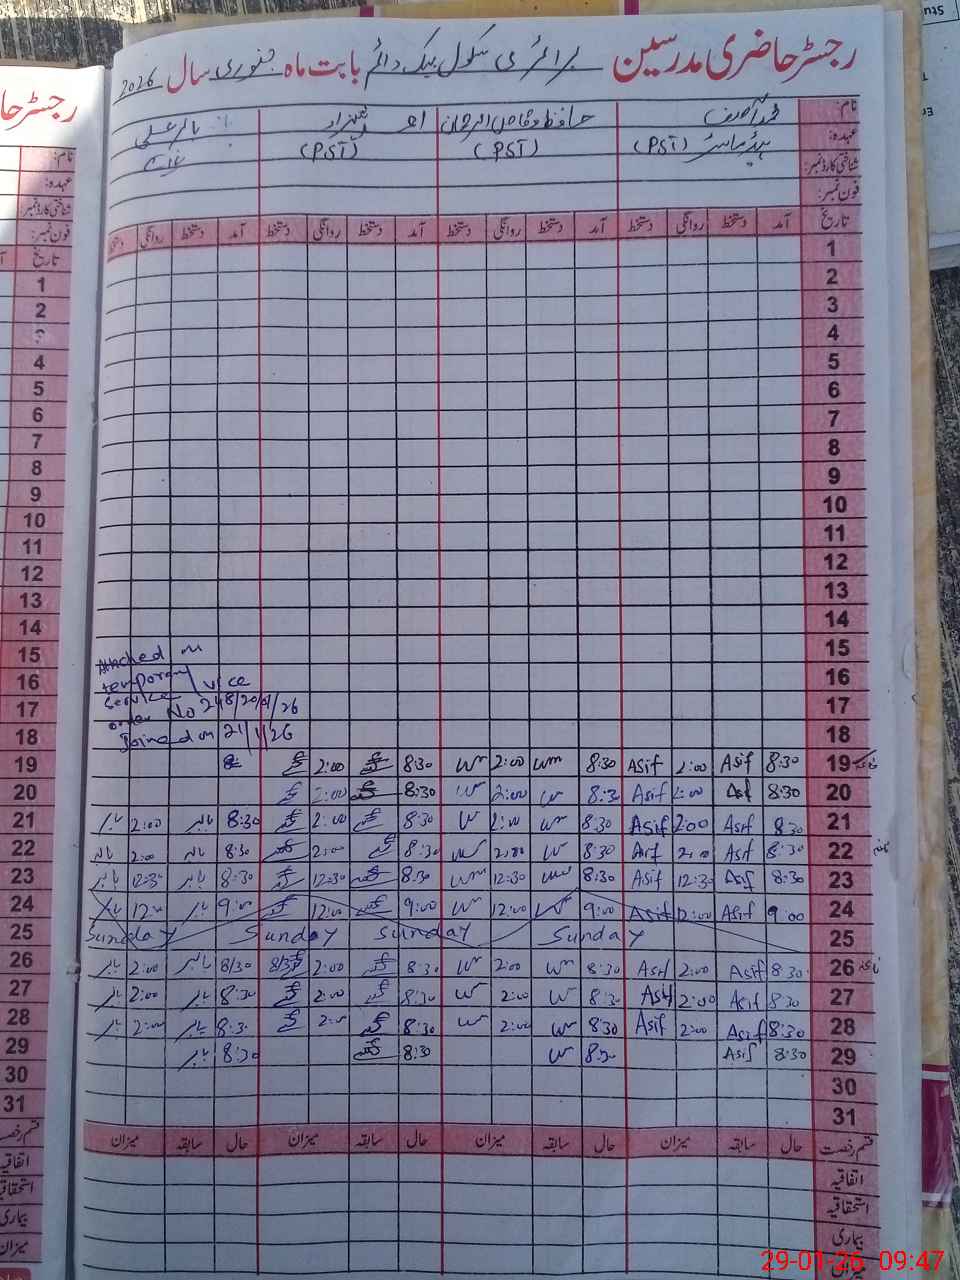 رجسٹر حاضری مدرسین برائمری سکول بیک دائم بابت ماہ جنوری سال 2026
نام: محمد آصف حافظ وقاص الرحمان شہزاد بابر علی
عہدہ: ہیڈ ماسٹر (PST) (PST) (PST)
شناختی کارڈ نمبر:
فون نمبر:
تاریخ آمد دستخط روانگی دستخط آمد دستخط روانگی دستخط آمد دستخط روانگی دستخط آمد دستخط روانگی دستخط
1
2
3
4
5
6
7
8
9
10
11
12
13
14
15 Attached on
16 temporary
17 service vice
18 order No 248/20/01/26
Joined on 21/1/26
19 8:30 Asif 2:00 Asif 8:30 2:00 8:30 2:00
20 8:30 Asif 2:00 Asif 8:30 2:00 8:30 2:00
21 8:30 Asif 2:00 Asif 8:30 2:00 8:30 2:00 8:30 بابر 2:00 بابر
22 8:30 Asif 2:00 Asif 8:30 2:00 8:30 2:00 8:30 بابر 2:00 بابر
23 8:30 Asif 12:30 Asif 8:30 12:30 8:30 12:30 8:30 بابر 12:30 بابر
24 9:00 Asif 12:00 Asif 9:00 12:00 9:00 12:00 9:00 بابر 12:00 بابر
25 Sunday Sunday Sunday Sunday
26 8:30 Asif 2:00 Asif 8:30 2:00 8:30 2:00 8/30 بابر 2:00 بابر
27 8:30 Asif 2:00 Asif 8:30 2:00 8:30 2:00 8:30 بابر 2:00 بابر
28 8:30 Asif 2:00 Asif 8:30 2:00 8:30 2:00 8:30 بابر 2:00 بابر
29 8:30 Asif 8:30 8:30 8:30 بابر
30
31
قسم رخصت حال سابقہ میزان حال سابقہ میزان حال سابقہ میزان حال سابقہ میزان
اتفاقیہ
استحقاقیہ
بیماری
میزان
رجسٹر حا
نام:
عہدہ:
شناختی کارڈ نمبر:
فون نمبر:
تاریخ
1
2
3
4
5
6
7
8
9
10
11
12
13
14
15
16
17
18
19
20
21
22
23
24
25
26
27
28
29
30
31
قسم رخصت
اتفاقیہ
استحقاقیہ
بیماری
میزان
29-01-26 09:47